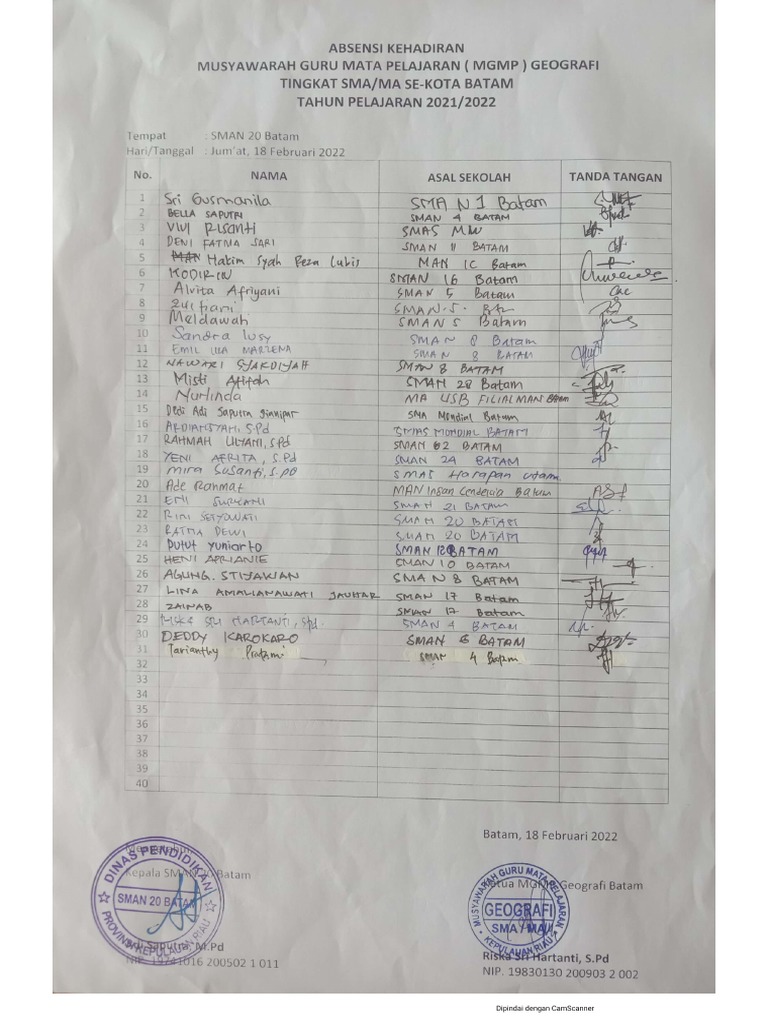 ABSENSI KEHADIRAN
MUSYAWARAH GURU MATA PELAJARAN ( MGMP ) GEOGRAFI
TINGKAT SMA/MA SE-KOTA BATAM
TAHUN PELAJARAN 2021/2022
Tempat : SMAN 20 Batam
Hari/Tanggal : Jum'at, 18 Februari 2022
No. NAMA ASAL SEKOLAH TANDA TANGAN
1 Sri Gusmanila SMA N 1 Batam
2 BELLA SAPUTRI SMAN 4 BATAM
3 VIVI RISANTI SMAS MW
4 DENI FATMA SARI SMAN 11 BATAM
5 Hakim Syah Reza Lubis MAN IC Batam
6 KODIRIN SMAN 16 Batam
7 Alvita Afriyani SMAN 5 Batam
8 Zulfiani SMAN 5 Btm
9 Meldawah SMAN 5 Batam
10 Sandra lusy SMAN 8 Batam
11 EMIL LIA MARLENA SMAN 8 BATAM
12 NAWARI SYAKDIYAH SMAN 8 BATAM
13 Misti Afifah SMAN 28 Batam
14 Nurlinda MA USB FILIAL MAN Batam
15 Dedi Adi Saputra Sianipar SMA Mondial Batam
16 ARDIANSYAH, S.Pd SMAS MONDIAL BATAM
17 RAHMAH ULYANI, S.Pd SMAN 02 BATAM
18 YENI AFRITA, S.Pd SMAN 24 BATAM
19 Mira Susanti, S.Pd SMAS Harapan Utama
20 Ade Rahmat MAN Insan Cendekia Batam
21 ENI SURYANI SMAN 21 BATAM
22 RINI SETYOWATI SMAN 20 BATAM
23 RATNA DEWI SMAN 20 BATAM
24 Putut Yuniarto SMAN 12 BATAM
25 HENI APRIANIE SMAN 10 BATAM
26 AGUNG. STIJAWAN SMAN 8 BATAM
27 LINA AMALIANAWATI JAUHAR SMAN 17 Batam
28 ZAINAB SMAN 17 Batam
29 RISKA SRI HARTANTI, SPd. SMAN 4 BATAM
30 DEDDY KAROKARO SMAN 6 BATAM
31 Tarianthy Pratami SMAN 4 Batam
32
33
34
35
36
37
38
39
40
Batam, 18 Februari 2022
Kepala SMAN 20 Batam
Ketua MGMP Geografi Batam
DINAS PENDIDIKAN
SMAN 20 BATAM
PROVINSI KEPULAUAN RIAU
MUSYAWARAH GURU MATA PELAJARAN
GEOGRAFI
SMA / MA
KEPULAUAN RIAU
Saputra, M.Pd
NIP. 19741016 200502 1 011
Riska Sri Hartanti, S.Pd
NIP. 19830130 200903 2 002
Dipindai dengan CamScanner